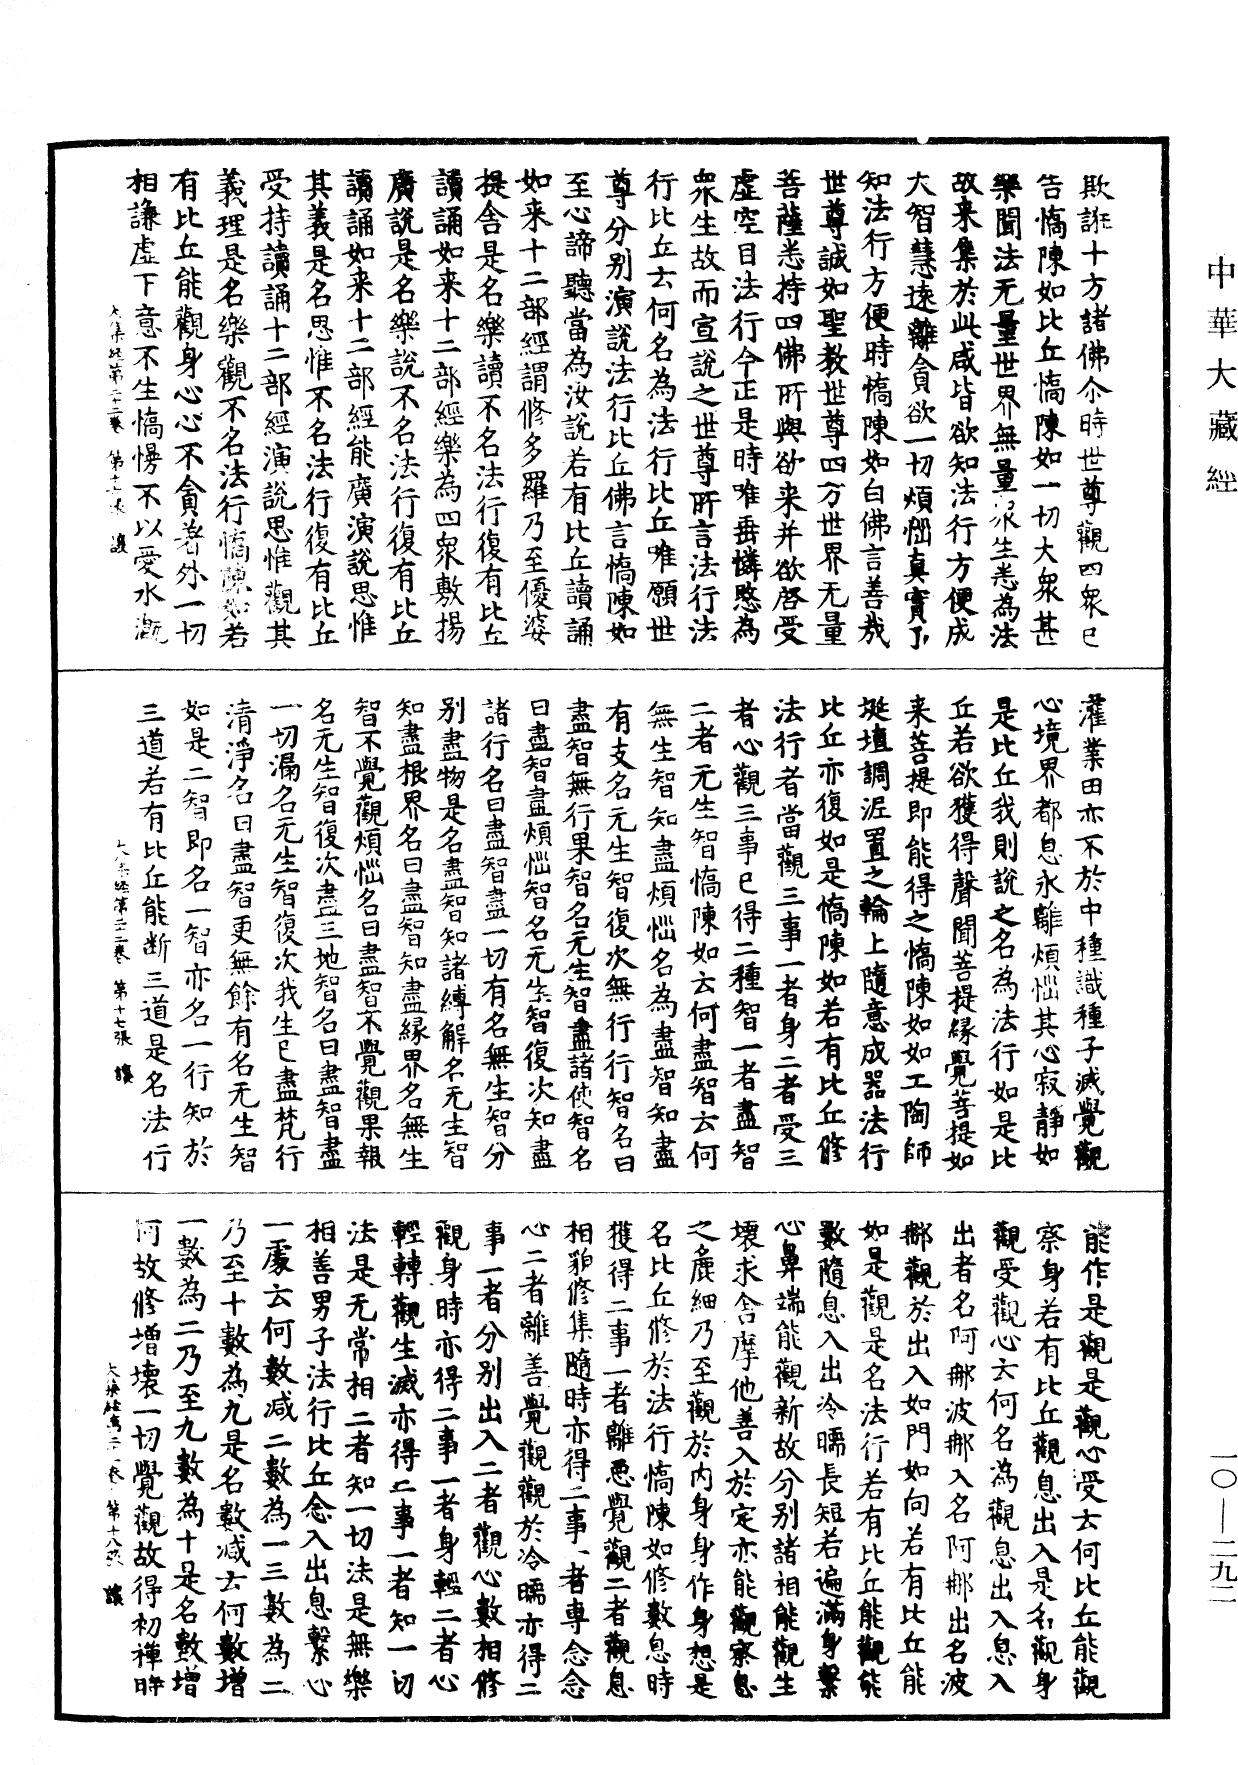 中華大藏經
欺誑十方諸佛尒時世尊觀四衆已
告憍陳如比丘憍陳如一切大衆甚
樂聞法无量世界無量衆生悉為法
故来集於此咸皆欲知法行方便成
大智慧遠離貪欲一切煩惱真實了
知法行方便時憍陳如白佛言善哉
世尊誠如聖教世尊四方世界无量
菩薩悉持四佛所與欲来并欲啓受
虚空目法行今正是時唯垂憐愍為
衆生故而宣說之世尊所言法行法
行比丘云何名為法行比丘唯願世
尊分別演說法行比丘佛言憍陳如
至心諦聽當為汝說若有比丘讀誦
如来十二部經謂修多羅乃至優婆
提舍是名樂讀不名法行復有比丘
讀誦如来十二部經樂為四衆敷揚
廣說是名樂說不名法行復有比丘
讀誦如来十二部經能廣演說思惟
其義是名思惟不名法行復有比丘
受持讀誦十二部經演說思惟觀其
義理是名樂觀不名法行憍陳如若
有比丘能觀身心心不貪著外一切
相謙虚下意不生憍慢不以愛水溉
大集經第二十二卷　第十六張　讓
灌業田亦不於中種識種子滅覺觀
心境界都息永離煩惱其心寂靜如
是比丘我則說之名為法行如是比
丘若欲獲得聲聞菩提緣覺菩提如
来菩提即能得之憍陳如如工陶師
埏埴調泥置之輪上隨意成器法行
比丘亦復如是憍陳如若有比丘修
法行者當觀三事一者身二者受三
者心觀三事已得二種智一者盡智
二者无生智憍陳如云何盡智云何
無生智知盡煩惱名為盡智知盡
有支名无生智復次無行行智名曰
盡智無行果智名无生智盡諸使智名
曰盡智盡煩惱智名无生智復次知盡
諸行名曰盡智盡一切有名無生智分
別盡物是名盡智知諸縛解名无生智
知盡根界名曰盡智知盡緣界名無生
智不覺觀煩惱名曰盡智不覺觀果報
名无生智復次盡三地智名曰盡智盡
一切漏名无生智復次我生已盡梵行
清淨名曰盡智更無餘有名无生智
如是二智即名一智亦名一行知於
三道若有比丘能断三道是名法行
大集經第二十二卷　第十七張　讓
能作是觀是觀心受云何比丘能觀
察身若有比丘觀息出入是名觀身
觀受觀心云何名為觀息出入息入
出者名阿那波那入名阿那出名波
那觀於出入如門如向若有比丘能
如是觀是名法行若有比丘能觀能
數隨息入出冷暖長短若遍滿身繫
心鼻端能觀新故分別諸相能觀生
壞求舍摩他善入於定亦能觀察息
之麁細乃至觀於內身身作身想是
名比丘修於法行憍陳如修數息時
獲得二事一者離惡覺觀二者觀息
相貌修集隨時亦得二事一者專念念
心二者離善覺觀觀於冷暖亦得二
事一者分別出入二者觀心數相修
觀身時亦得二事一者身輕二者心
輕轉觀生滅亦得二事一者知一切
法是无常相二者知一切法是無樂
相善男子法行比丘念入出息繫心
一處云何數減二數為一三數為二
乃至十數為九是名數減云何數增
一數為二乃至九數為十是名數增
何故修增壞一切覺觀故得初禪時
大集經第二十二卷　第十八張　讓
一〇—二九二